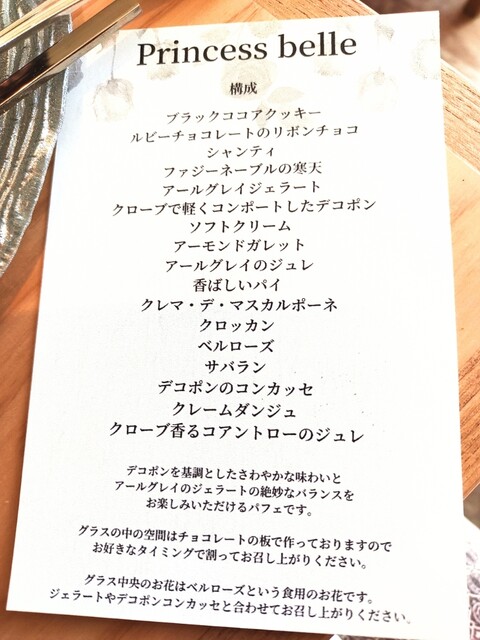 Princess belle
構成
ブラックココアクッキー
ルビーチョコレートのリボンチョコ
シャンティ
ファジーネーブルの寒天
アールグレイジェラート
クローブで軽くコンポートしたデコポン
ソフトクリーム
アーモンドガレット
アールグレイのジュレ
香ばしいパイ
クレマ・デ・マスカルポーネ
クロッカン
ベルローズ
サバラン
デコポンのコンカッセ
クレームダンジュ
クローブ香るコアントローのジュレ
デコポンを基調としたさわやかな味わいと
アールグレイのジェラートの絶妙なバランスを
お楽しみいただけるパフェです。
グラスの中の空間はチョコレートの板で作っておりますので
お好きなタイミングで割ってお召し上がりください。
グラス中央のお花はベルローズという食用のお花です。
ジェラートやデコポンコンカッセと合わせてお召し上がりください。